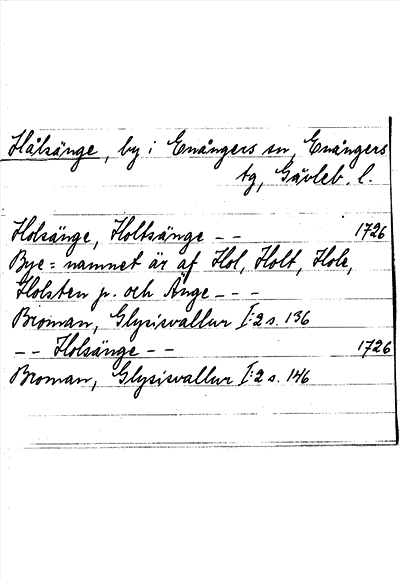 Hålsänge, by i Enångers sn, Enångers
tg, Gävleb. l.
Holsänge, Holtsänge -- 1726
Bye=namnet är af Hol, Holt, Hole,
Holsten p. och Änge ---
Broman, Glysisvallur I:2 s. 136
-- Holsänge -- 1726
Broman, Glysisvallur I:2 s. 146